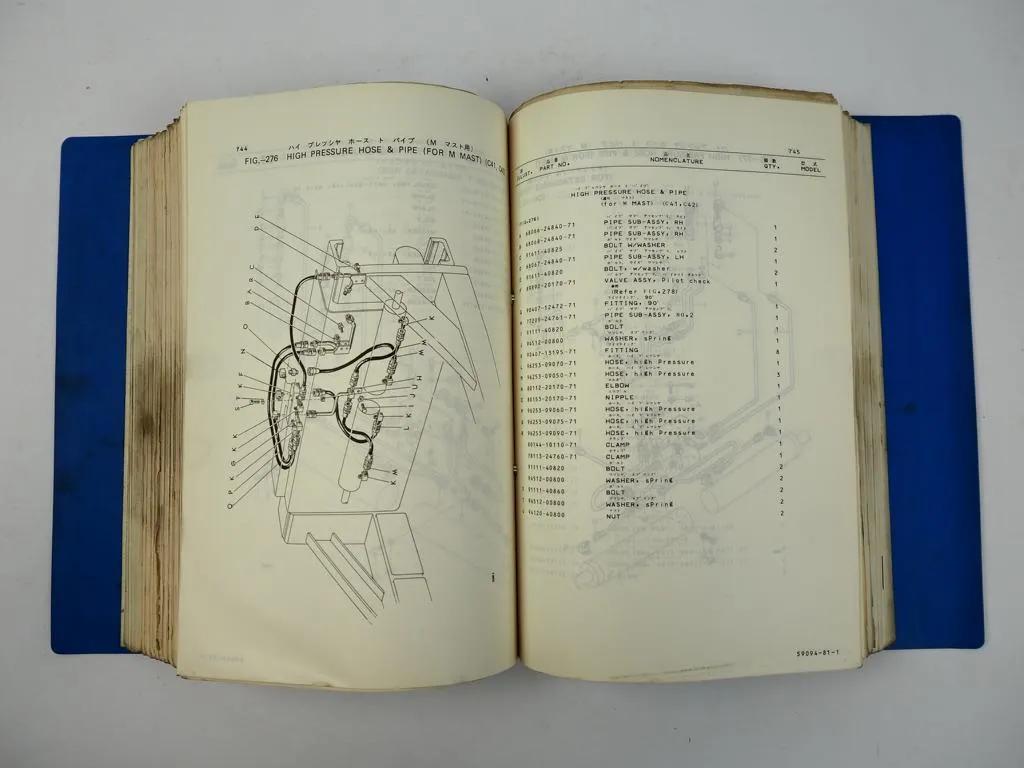 744
ハイ プレッシヤ ホース ト パイプ (M マスト用)
FIG.-276 HIGH PRESSURE HOSE & PIPE (FOR M MAST) (C41,
E
D
A
R
C
A
B
O
N
F
K
T
S
K
K
G
K
P
Q
K
M
M
H
U
J
K
L
M
K
745
品番
PART NO.
品名
NOMENCLATURE
個数
QTY.
型式
MODEL
HIGH PRESSURE HOSE & PIPE
(for M MAST) (C41,C42)
68066-24840-71 PIPE SUB-ASSY, RH 1
68068-24840-71 PIPE SUB-ASSY, RH 1
91611-40825 BOLT W/WASHER 2
68067-24840-71 PIPE SUB-ASSY, LH 1
91611-40820 BOLT, w/washer 2
80090-20170-71 VALVE ASSY, Pilot check 1
(Refer FIG.278)
90407-12472-71 FITTING, 90° 1
77209-24761-71 PIPE SUB-ASSY, NO.2 1
91111-40820 BOLT 1
94512-00800 WASHER, sPring 1
90407-13195-71 FITTING 8
96253-09070-71 HOSE, high Pressure 1
96253-09050-71 HOSE, high Pressure 3
80112-20170-71 ELBOW 1
80151-20170-71 NIPPLE 1
96253-09060-71 HOSE, high Pressure 1
96253-09075-71 HOSE, high Pressure 1
96253-09090-71 HOSE, high Pressure 1
80144-10110-71 CLAMP 1
78113-24760-71 CLAMP 1
91111-40820 BOLT 2
94512-00800 WASHER, sPring 2
91111-40860 BOLT 2
94512-00800 WASHER, sPring 2
94120-40800 NUT 2
59094-81-1